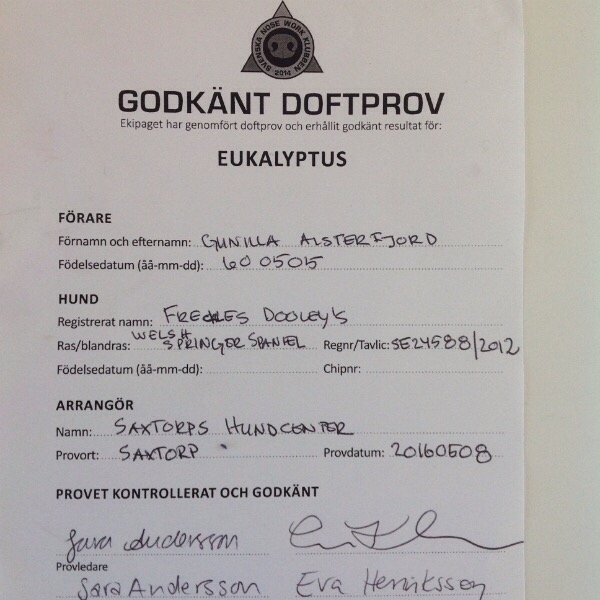 SVENSKA NOSE WORK KLUBBEN
2014
GODKÄNT DOFTPROV
Ekipaget har genomfört doftprov och erhållit godkänt resultat för:
EUKALYPTUS
FÖRARE
Förnamn och efternamn: GUNILLA ALSTERFJORD
Födelsedatum (åå-mm-dd): 600505
HUND
Registrerat namn: FRECKLES DOOLEY'S
Ras/blandras: WELSH SPRINGER SPANIEL Regnr/Tavlic: SE24588/2012
Födelsedatum (åå-mm-dd): Chipnr:
ARRANGÖR
Namn: SAXTORPS HUNDCENTER
Provort: SAXTORP Provdatum: 20160508
PROVET KONTROLLERAT OCH GODKÄNT
Sara Andersson
Provledare
Sara Andersson Eva Henriksson